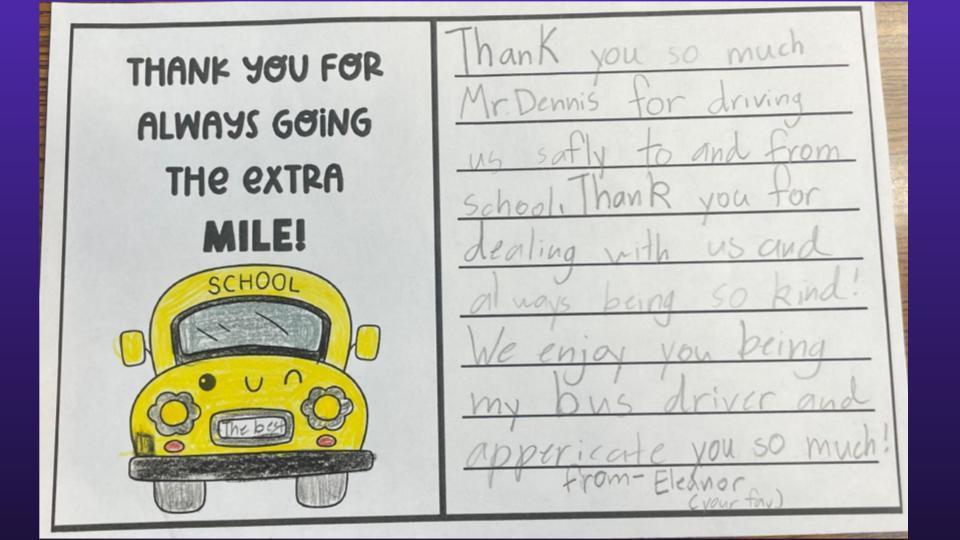 THANK YOU FOR
ALWAYS GOING
THE EXTRA
MILE!
SCHOOL
The best
Thank you so much
Mr. Dennis for driving
us safly to and from
school. Thank you for
dealing with us and
always being so kind!
We enjoy you being
my bus driver and
appericate you so much!
from- Eleanor
(your fav)